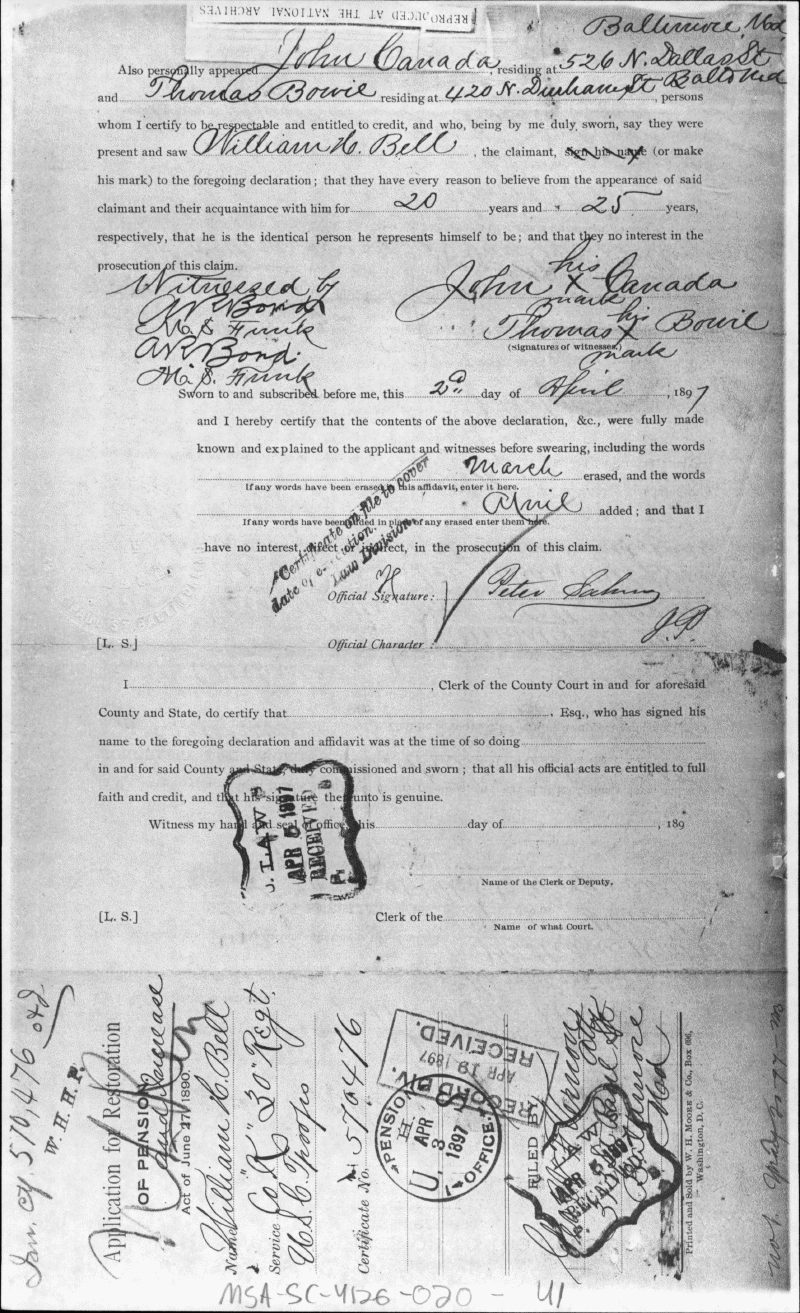 REPRODUCED AT THE NATIONAL ARCHIVES
Baltimore, Md
Also personally appeared John Canada, residing at 526 N. Dallas St
and Thomas Bowie residing at 420 N. Durham St Balto Md, persons
whom I certify to be respectable and entitled to credit, and who, being by me duly sworn, say they were
present and saw William H. Bell, the claimant, sign his name (or make
his mark) to the foregoing declaration; that they have every reason to believe from the appearance of said
claimant and their acquaintance with him for 20 years and 25 years,
respectively, that he is the identical person he represents himself to be; and that they no interest in the
prosecution of this claim.
Witnessed by
A. V. Bond
M. S. Funk
A. V. Bond.
M. S. Funk
his
John X Canada
mark
his
Thomas X Bowie
(signatures of witnesses.)
mark
Sworn to and subscribed before me, this 2d day of April, 1897
and I hereby certify that the contents of the above declaration, &c., were fully made
known and explained to the applicant and witnesses before swearing, including the words
March erased, and the words
If any words have been erased in this affidavit, enter it here.
April added; and that I
If any words have been added in place of any erased enter them here.
have no interest, direct or indirect, in the prosecution of this claim.
Certificate on file to cover
date of execution.
Law Division
Official Signature: Peter
J. P.
[L. S.]
Official Character:
I, Clerk of the County Court in and for aforesaid
County and State, do certify that, Esq., who has signed his
name to the foregoing declaration and affidavit was at the time of so doing
in and for said County and State, duly commissioned and sworn; that all his official acts are entitled to full
faith and credit, and that his signature thereunto is genuine.
Witness my hand and seal of office, this day of, 189
LAW
APR 5 1897
RECEIVED
Name of the Clerk or Deputy.
[L. S.]
Clerk of the
Name of what Court.
570,476
W. H. H. P.
Application for Restoration
OF PENSION
and Increase
Act of June 27, 1890.
Name William H. Bell
Service Co "K" 30" Regt.
U.S.C. Troops
Certificate No. 570476
RECORD DIV.
APR 19 1897
RECEIVED.
U.S. PENSION OFFICE
APR 3 1897
FILED BY
St Paul St
Baltimore
Md
LAW
APR 5 1897
RECEIVED
Printed and Sold by W. H. Moore & Co., Box 666,
Washington, D. C.
MSA-SC-4126-020-41